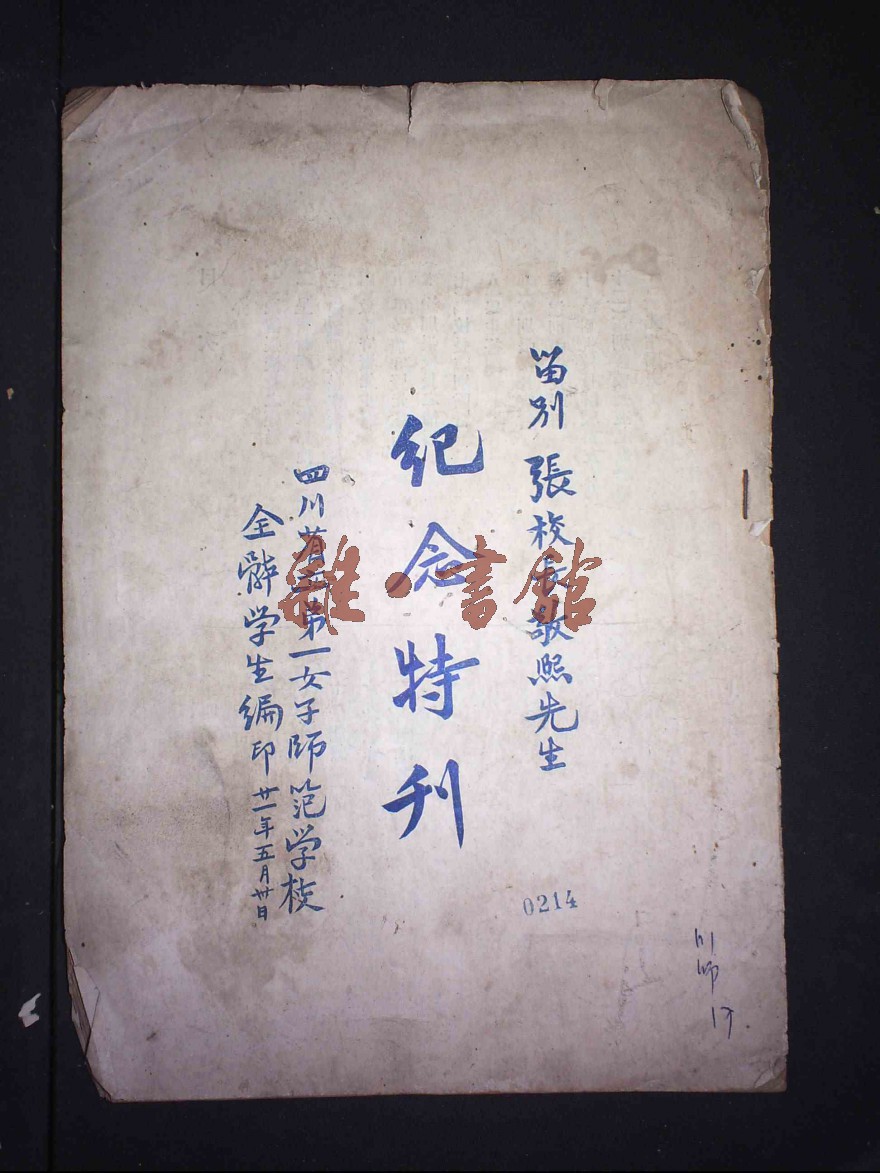 畄别 張校長敬熙先生
紀念特刊
四川省立第一女子師范学校
全髒学生編印 廿一年五月卅日
0214
川师
雜·書館